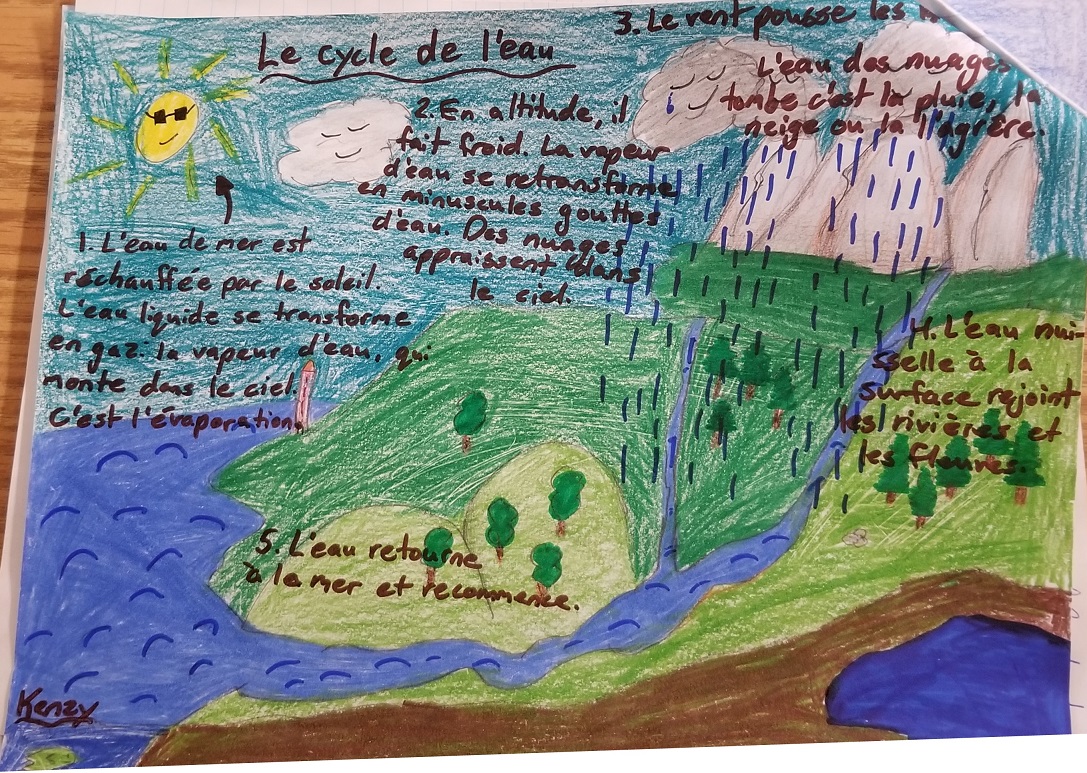 Le cycle de l'eau
1. L'eau de mer est
réchauffée par le soleil.
L'eau liquide se transforme
en gaz: la vapeur d'eau, qui
monte dans le ciel.
C'est l'évaporation.
2. En altitude, il
fait froid. La vapeur
d'eau se retransforme
en minuscules gouttes
d'eau. Des nuages
appraissent dans
le ciel.
3. Le vent pousse les
L'eau des nuages
tombe c'est la pluie, la
neige ou la
4. L'eau rui-
sselle à la
surface rejoint
les rivières et
les fleuves.
5. L'eau retourne
à la mer et recommence.
Kenzy